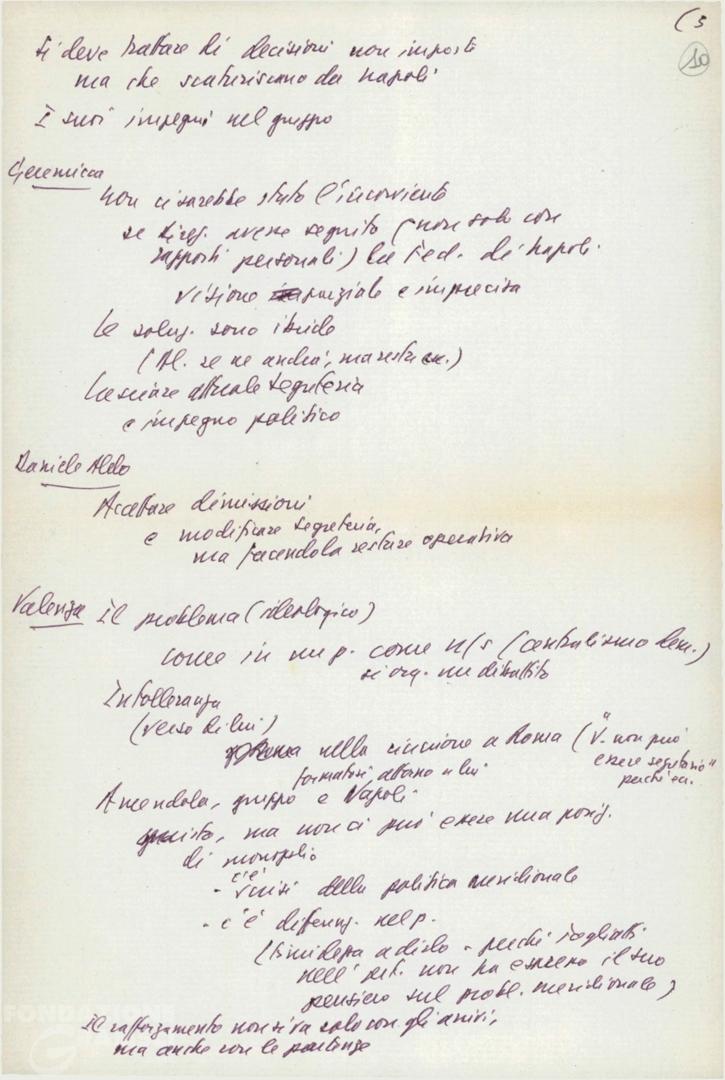 (5
10
Si deve trattare di decisioni non imposte
ma che scaturiscano da Napoli
I suoi impegni nel gruppo
Geremicca
Non ci sarebbe stato l'inconveniente
se Direz. avesse seguito (non solo con
rapporti personali) la Fed. di Napoli.
visione parziale e imprecisa
Le soluz. sono ibride
(Al. se ne andrà, ma resta)
Lasciare attuale segreteria
e impegno politico
Daniele Aldo
Accettare dimissioni
e modificare segreteria,
ma facendola restare operativa
Valenza Il problema (ideologico)
come in un p. come n/s (centralismo dem.)
si org. un dibattito
Intolleranza
(verso di lui)
nella riunione a Roma ("V. non può
essere segretario"
perché
formatosi attorno a lui
Amendola, gruppo e Napoli
giusto, ma non ci può essere una posiz.
di monopolio
c'è
- crisi della politica meridionale
- c'è differenz. nel p.
(timidezza a dirlo - perché Togliatti
nell' non ha espresso il suo
pensiero sul probl. meridionale)
Il rafforzamento non si fa solo con gli arrivi,
ma anche con le partenze
FONDAZIONE